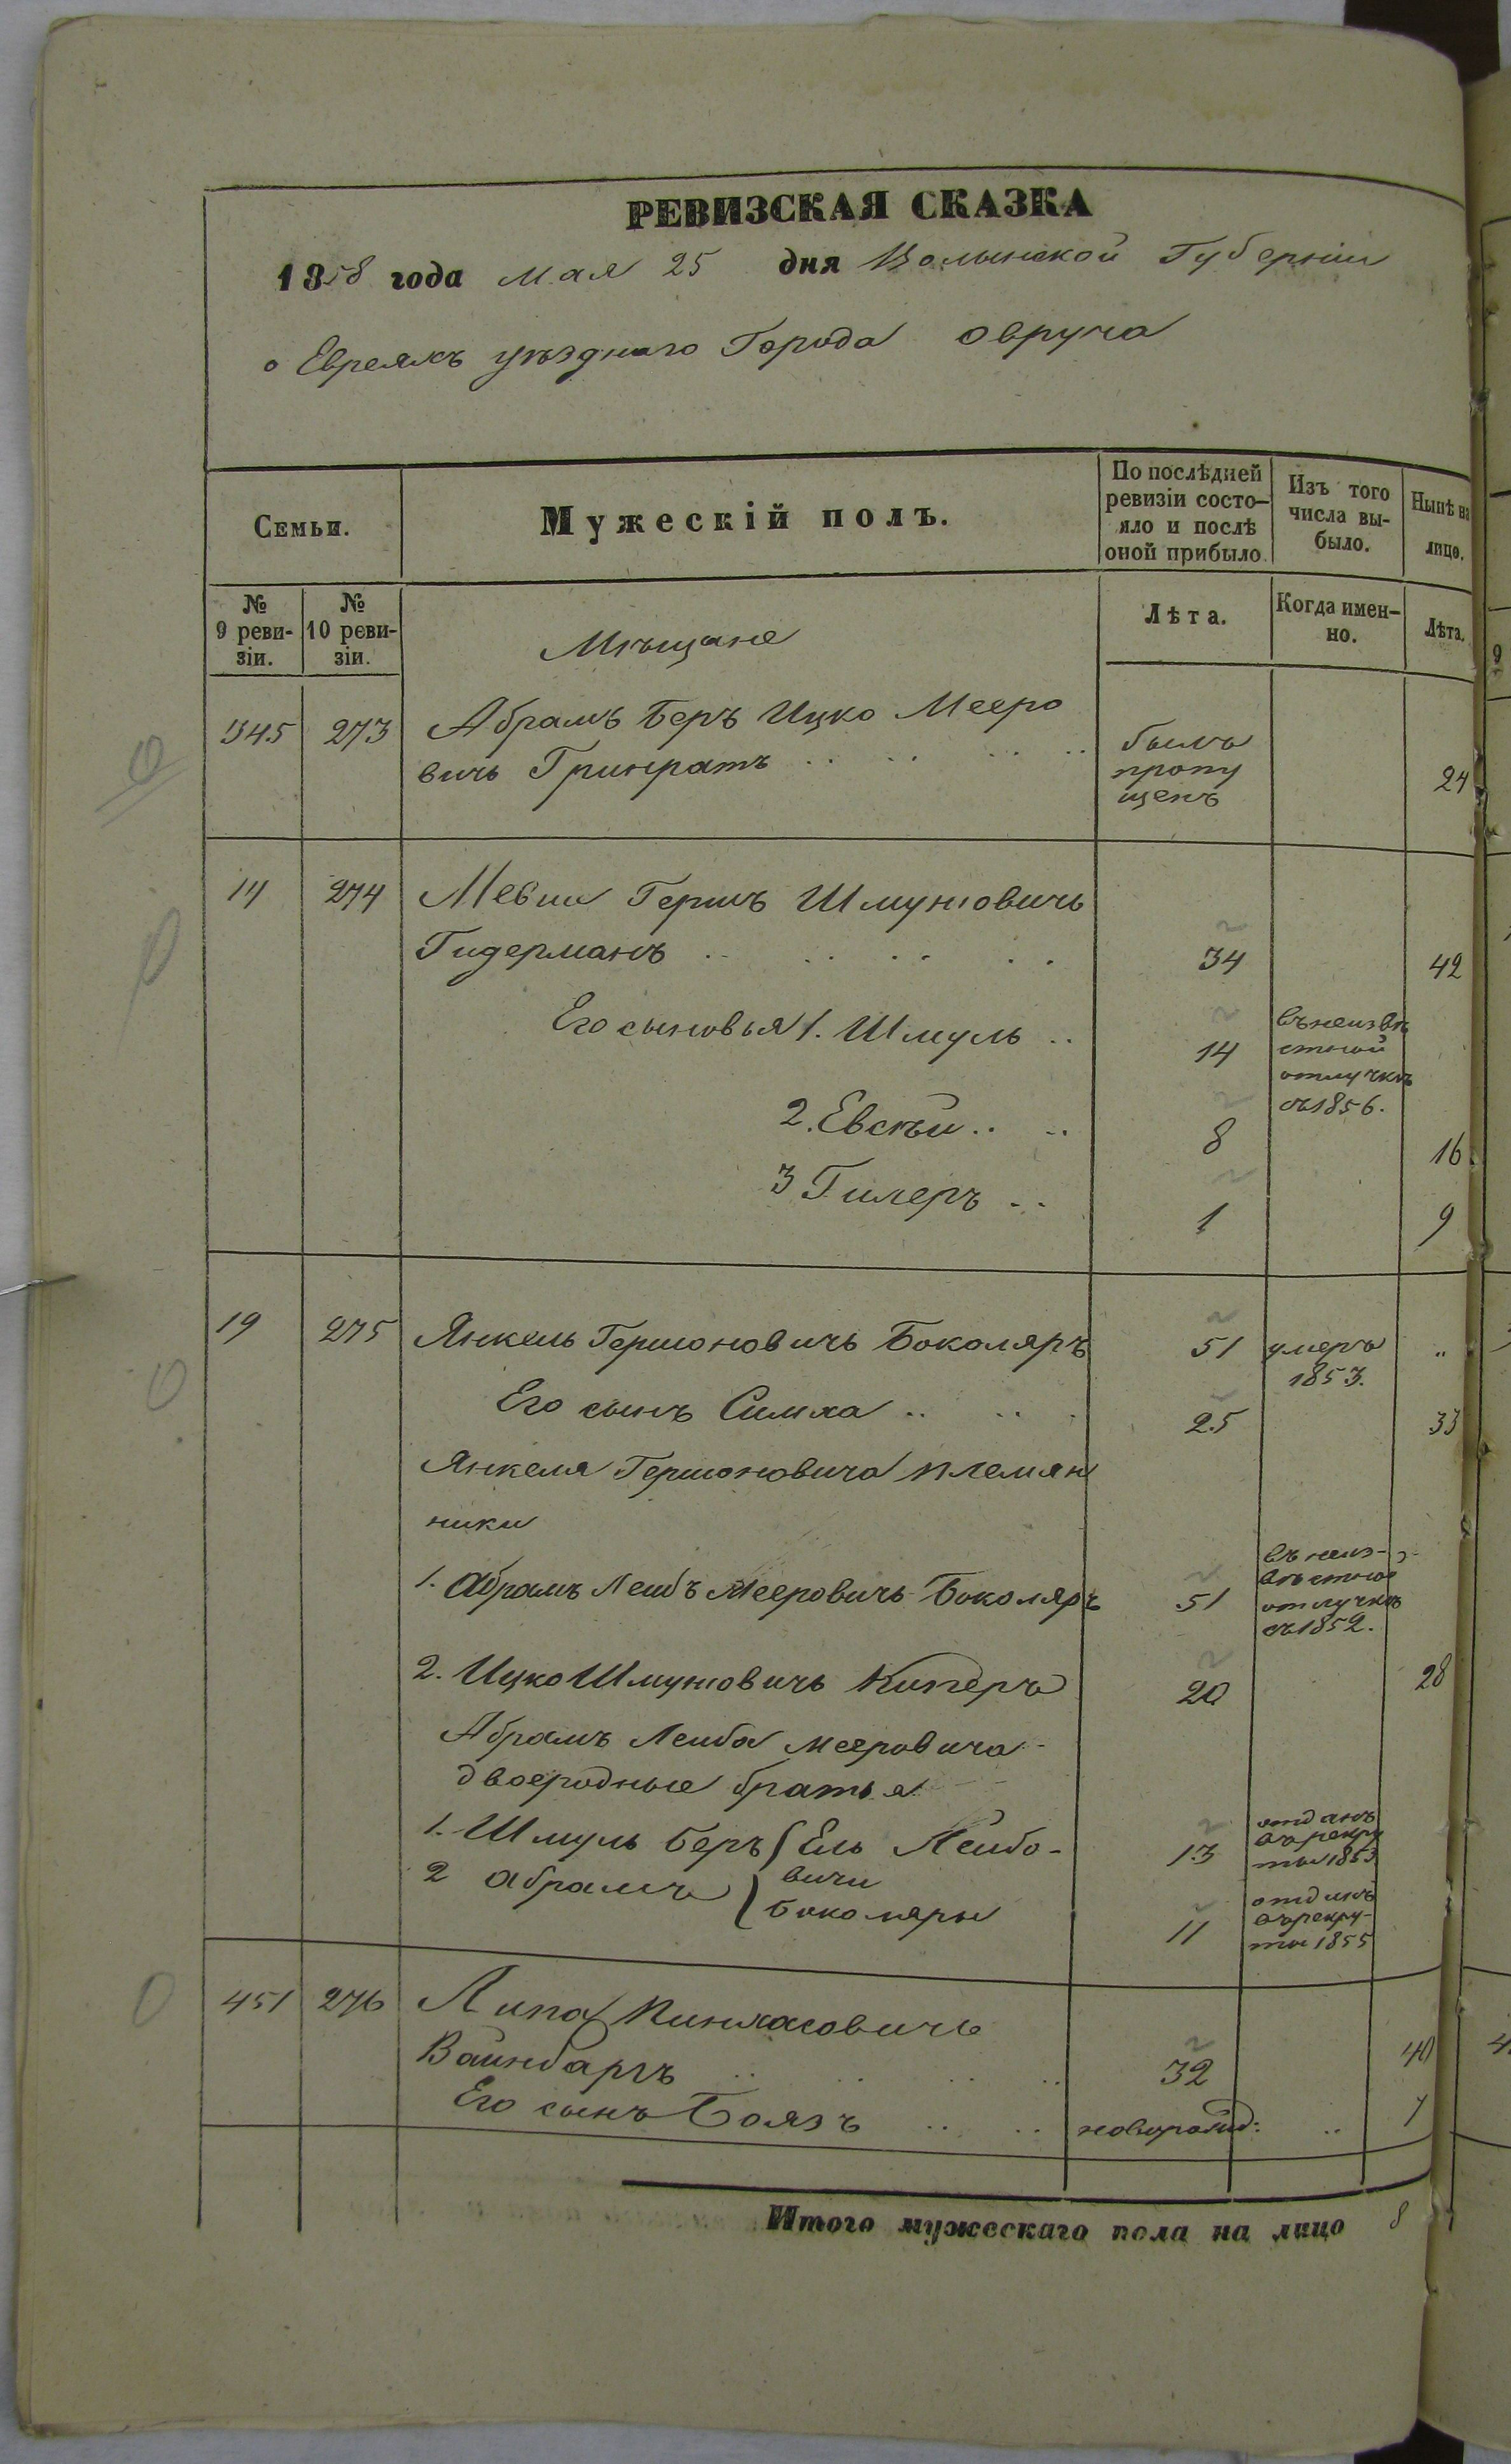 РЕВИЗСКАЯ СКАЗКА
1858 года мая 25 дня Волынской Губерніи
о Евреяхъ уѣзднаго Города Овруча
Семьи.
Мужескій полъ.
По послѣдней
ревизіи состо-
яло и послѣ
оной прибыло.
Изъ того
числа вы-
было.
Нынѣ на
лицо.
№
9 реви-
зіи.
№
10 реви-
зіи.
Мѣщане
Лѣта.
Когда имен-
но.
Лѣта.
345 273 Абрамъ Беръ Ицко Мееро
вичь .. .. .. .. былъ
пропу
щенъ
24
14 274 Гершъ Шмулiовичь
Гидерманъ .. .. .. .. 34 42
Его сыновья 1. Шмуль .. 14
въ неизвѣ
стной
отлучкѣ
съ 1856.
2. Евсѣй .. .. 8 16
3 Гилеръ .. 1 9
19 275 Янкель Гершоновичь Боколяръ 51 умеръ
1853.
„
Его сынъ Симха .. .. . 25 33
Янкеля Гершоновича племян
ники
1. Абрамъ Лейбъ Мееровичь Боколяръ 51
въ неиз-
вѣстной
отлучкѣ
съ 1852.
2. Ицко Шмулiовичь Киперъ 20 28
Абрамъ Лейба Мееровича
двоеродные братья
1. Шмуль Беръ Ель Лейбо-
2 Абрамъ вичи
Боколяры
13 отданъ
въ рекру
ты 1853
11 отданъ
въ рекру-
ты 1855
451 276 Липа Пинхасовичь
Вайнбаргъ .. .. .. .. 32 40
Его сынъ Боязъ .. .. новорожд: .. 7
Итого мужескаго пола на лицо 8